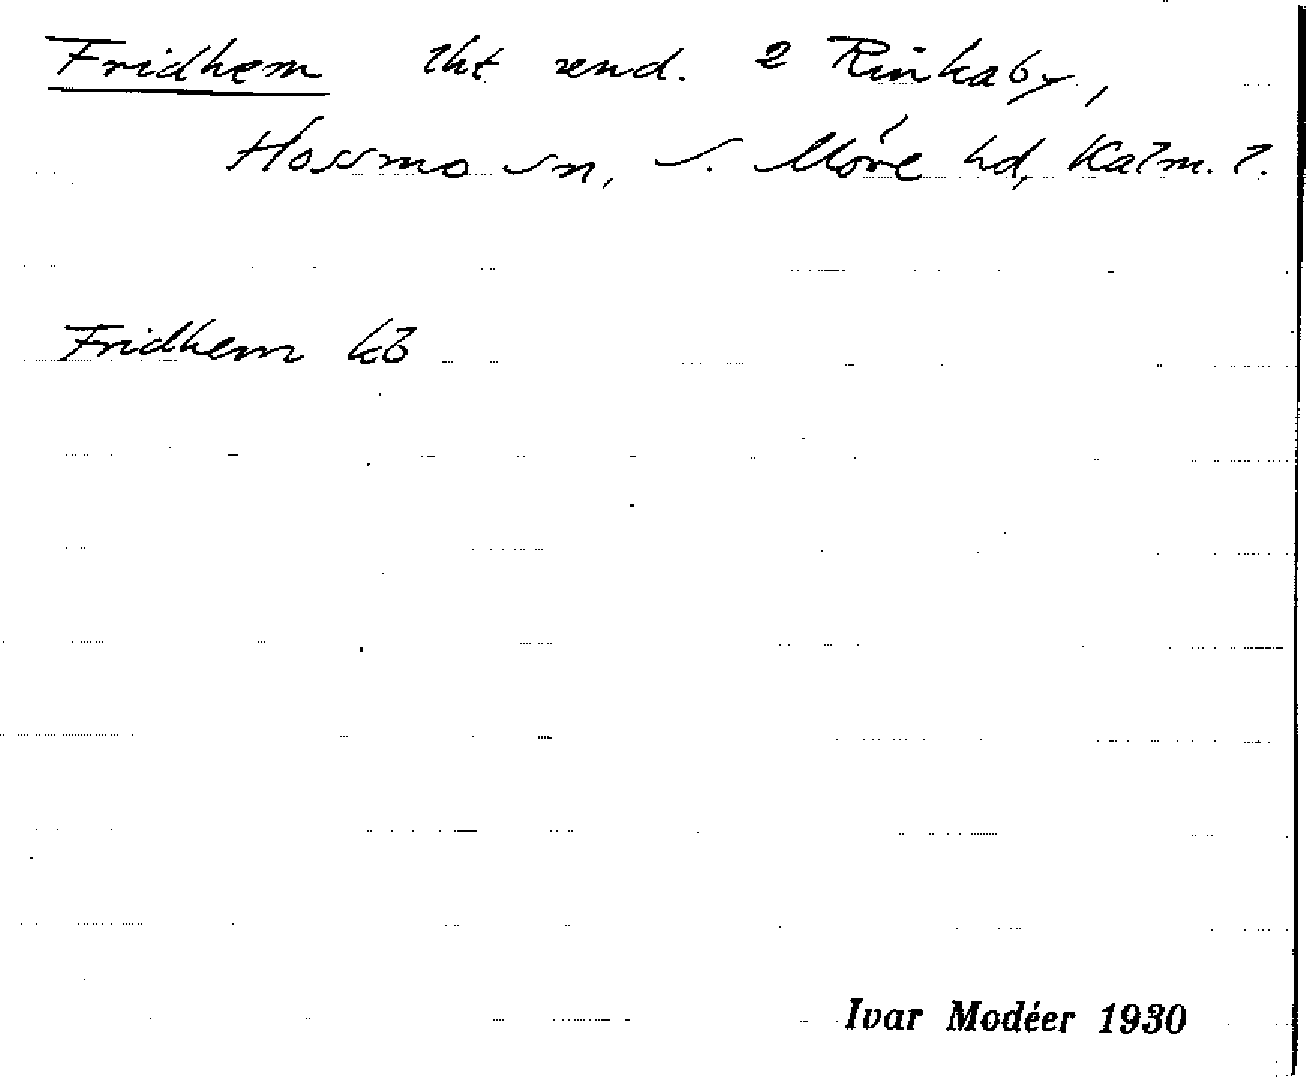 Fridhem lht und. 2 Rinkaby,
Hossmo sn, S. Möre hd, Kalm. l.
Fridhem kb
Ivar Modéer 1930